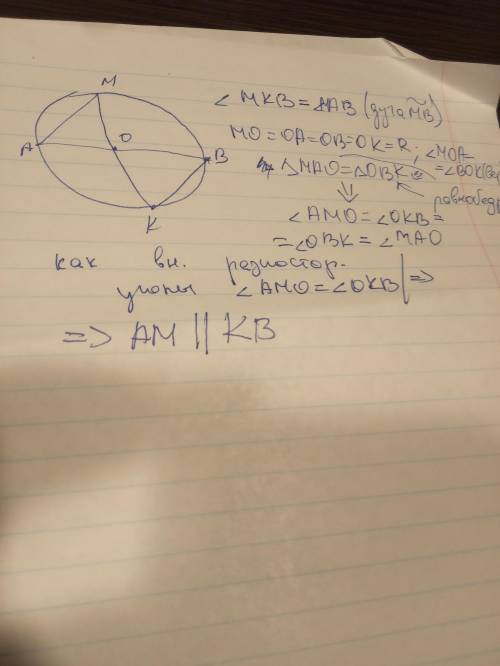 M
A
O
B
K
∠ MKB = MAB (дуга M͝B)
MO = OA = OB = OK = R; ∠MOA = ∠BOK (вер
△MAO = △OBK
равнобедр
⇓
∠AMO = ∠OKB =
= ∠OBK = ∠MAO
как вн. разностор.
углы ∠AMO = ∠OKB | =>
=> AM || KB